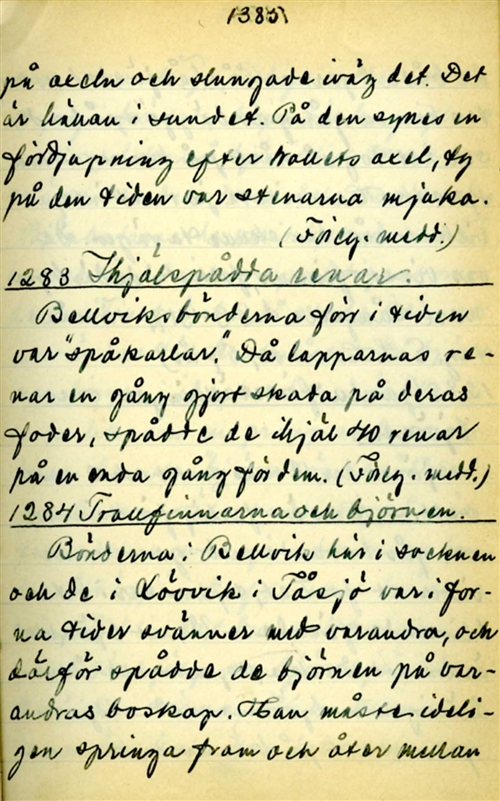 1385
på axeln och slungade iväg det. Det
är hällan i sundet. På den synes en
fördjupning efter trollets axel, ty
på den tiden var stenarna mjuka.
(Föreg. medd.)
1283 Ihjälspådda renar.
Bellviksbönderna förr i tiden
var "spåkarlar." Då lapparnas re-
nar en gång gjort skada på deras
foder, spådde de ihjäl 40 renar
på en enda gång för dem. (Föreg. medd.)
1284 Trollfinnarna och björnen.
Bönderna i Bellvik här i socknen
och de i Lövvik i Tåsjö var i for-
na tider ovänner med varandra, och
därför spådde de björnen på var-
andras boskap. Han måste ideli-
gen springa fram och åter mellan